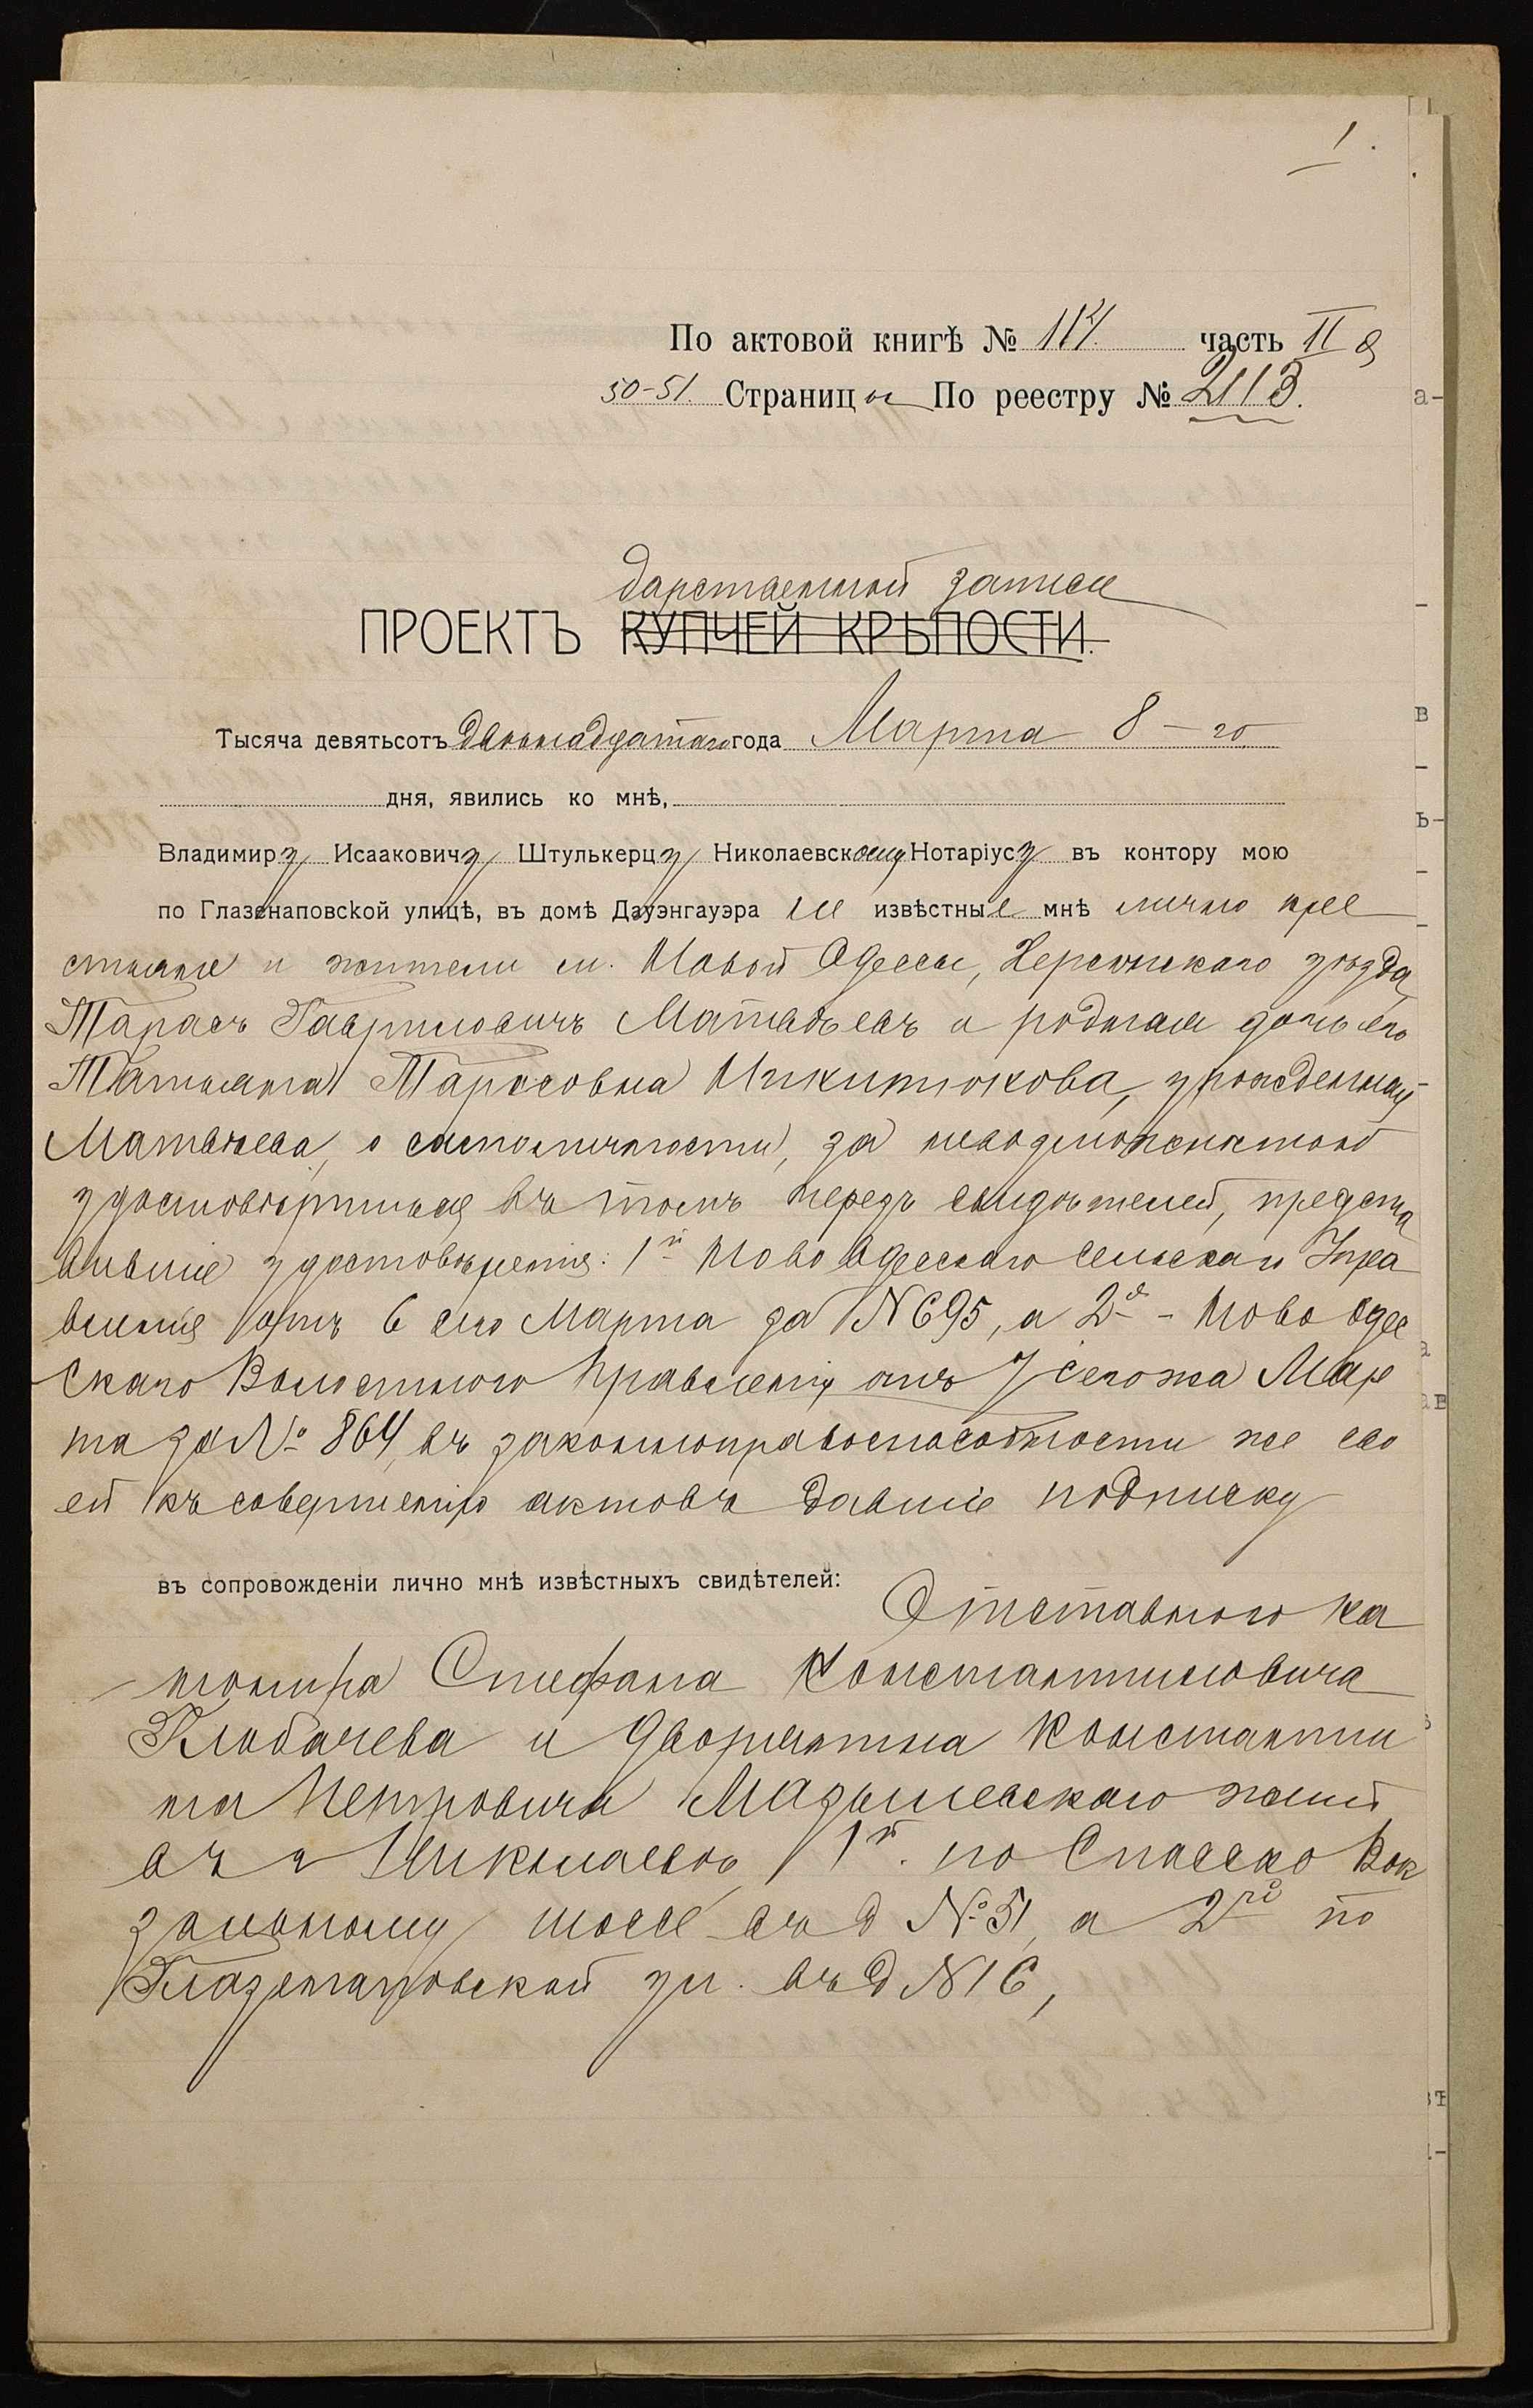 1.
По актовой книгѣ № 114. часть II я
50-51. Страницы По реестру № 2113.
дарственной записи
ПРОЕКТЪ КУПЧЕЙ КРѢПОСТИ.
Тысяча девятьсотъ двѣнадцатаго года Марта 8-го
дня, явились ко мнѣ,
Владимиру Исааковичу Штулькерцу Николаевскому Нотаріусу въ контору мою
по Глазенаповской улицѣ, въ домѣ Дауэнгауэра не извѣстные мнѣ лично кре
стьяне и жители м. Новой Одессы, Херсонскаго уѣзда
Тарасъ Гавриловичъ Матвѣевъ и родная дочь его
Татьяна Тарасовна Никитюкова, урожденная
Матвѣева, о самоличности, за невозможностью
удостовѣриться въ томъ черезъ свидѣтелей, предста
вившіе удостовѣренія: 1й Ново Одесскаго Сельскаго Упра
вленія отъ 6 сего Марта за N 695, а 2я - Ново Одес
скаго Волостного Правленія отъ 7 сего же Мар
та за № 864, въ законноправоспособности же сво
ей къ совершенію актовъ давшіе подписку
въ сопровожденіи лично мнѣ извѣстныхъ свидѣтелей:
Отставного ка
нонира Стефана Константиновича
Клобачева и дворянина Константи
на Петровича жив
въ г Николаевѣ, 1й. по Спасско Вок
зальному шоссе въ д № 51, а 2ой по
Глазенаповской ул. въ д N 16,